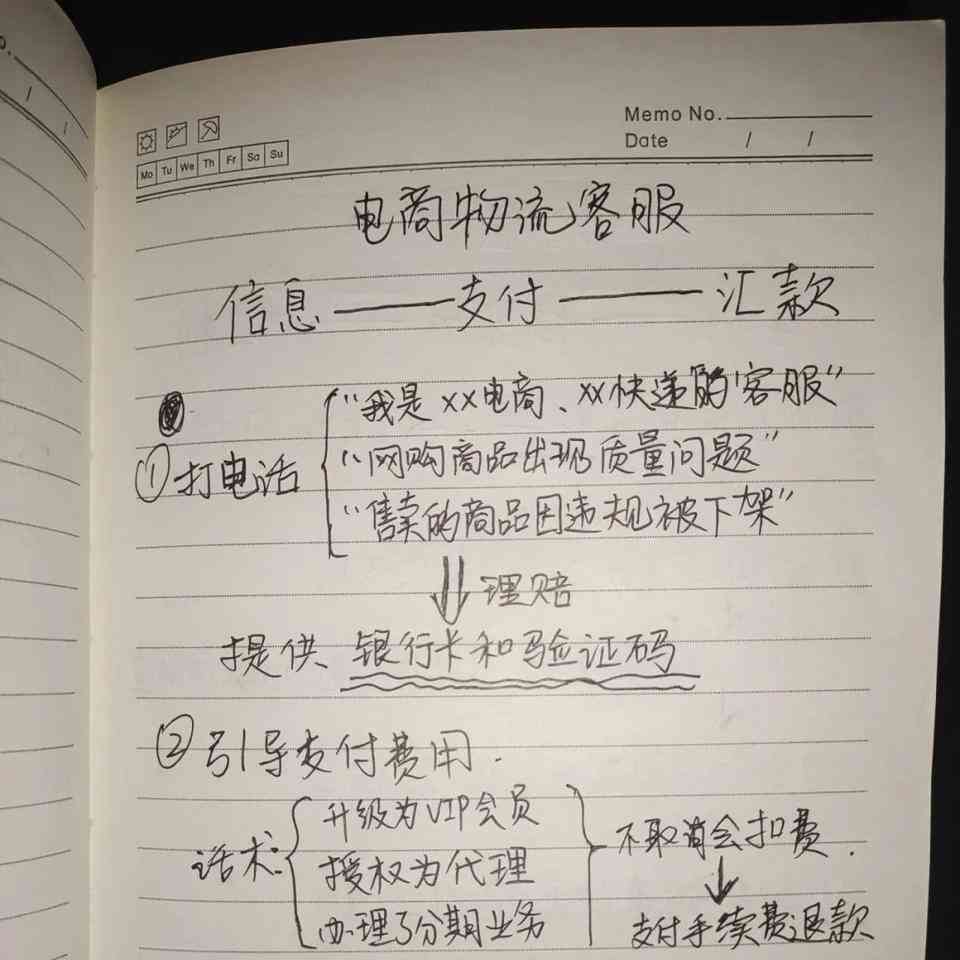 Memo No.
Mo Tu We Th Fr Sa Su
Date / /
电商物流客服
信息——支付——汇款
①打电话
“我是xx电商、xx快递的客服”
“网购商品出现质量问题”
“售卖的商品因违规被下架”
理赔
提供、银行卡和验证码
②引导支付费用.
话术:
升级为VIP会员
授权为代理
办理了分期业务
不取消会扣费.
支付手续费退款